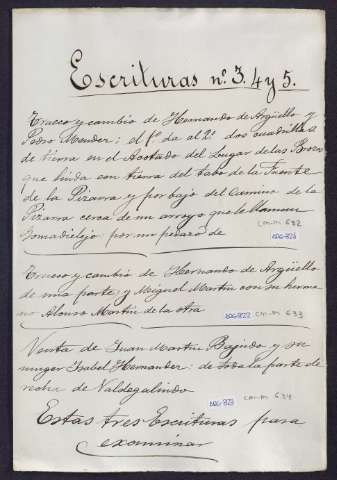 Escrituras nº. 3. 4 y 5.
Trueco y cambio de Hernando de Argüello y
Pedro Mender; el 1º da al 2º dos cuadrillas
de tierra en el Acotado del Lugar de las Brozas
que linda con tierra del Cabo de la Fuente
de la Pizarra y por bajo del Camino de la
Pizarra cerca de un arroyo que le llaman
por un pedazo de
CM-M 632
006822
Trueco y cambio de Hernando de Argüello
de una parte y Miguel Martin con su herma
no Alonso Martin de la otra
CM-M 633
Venta de Juan Martin y su
muger Isabel Hernander: de toda la parte de
de Valdegalindo
006823 CM-M 634
Estas tres Escrituras para
examinar